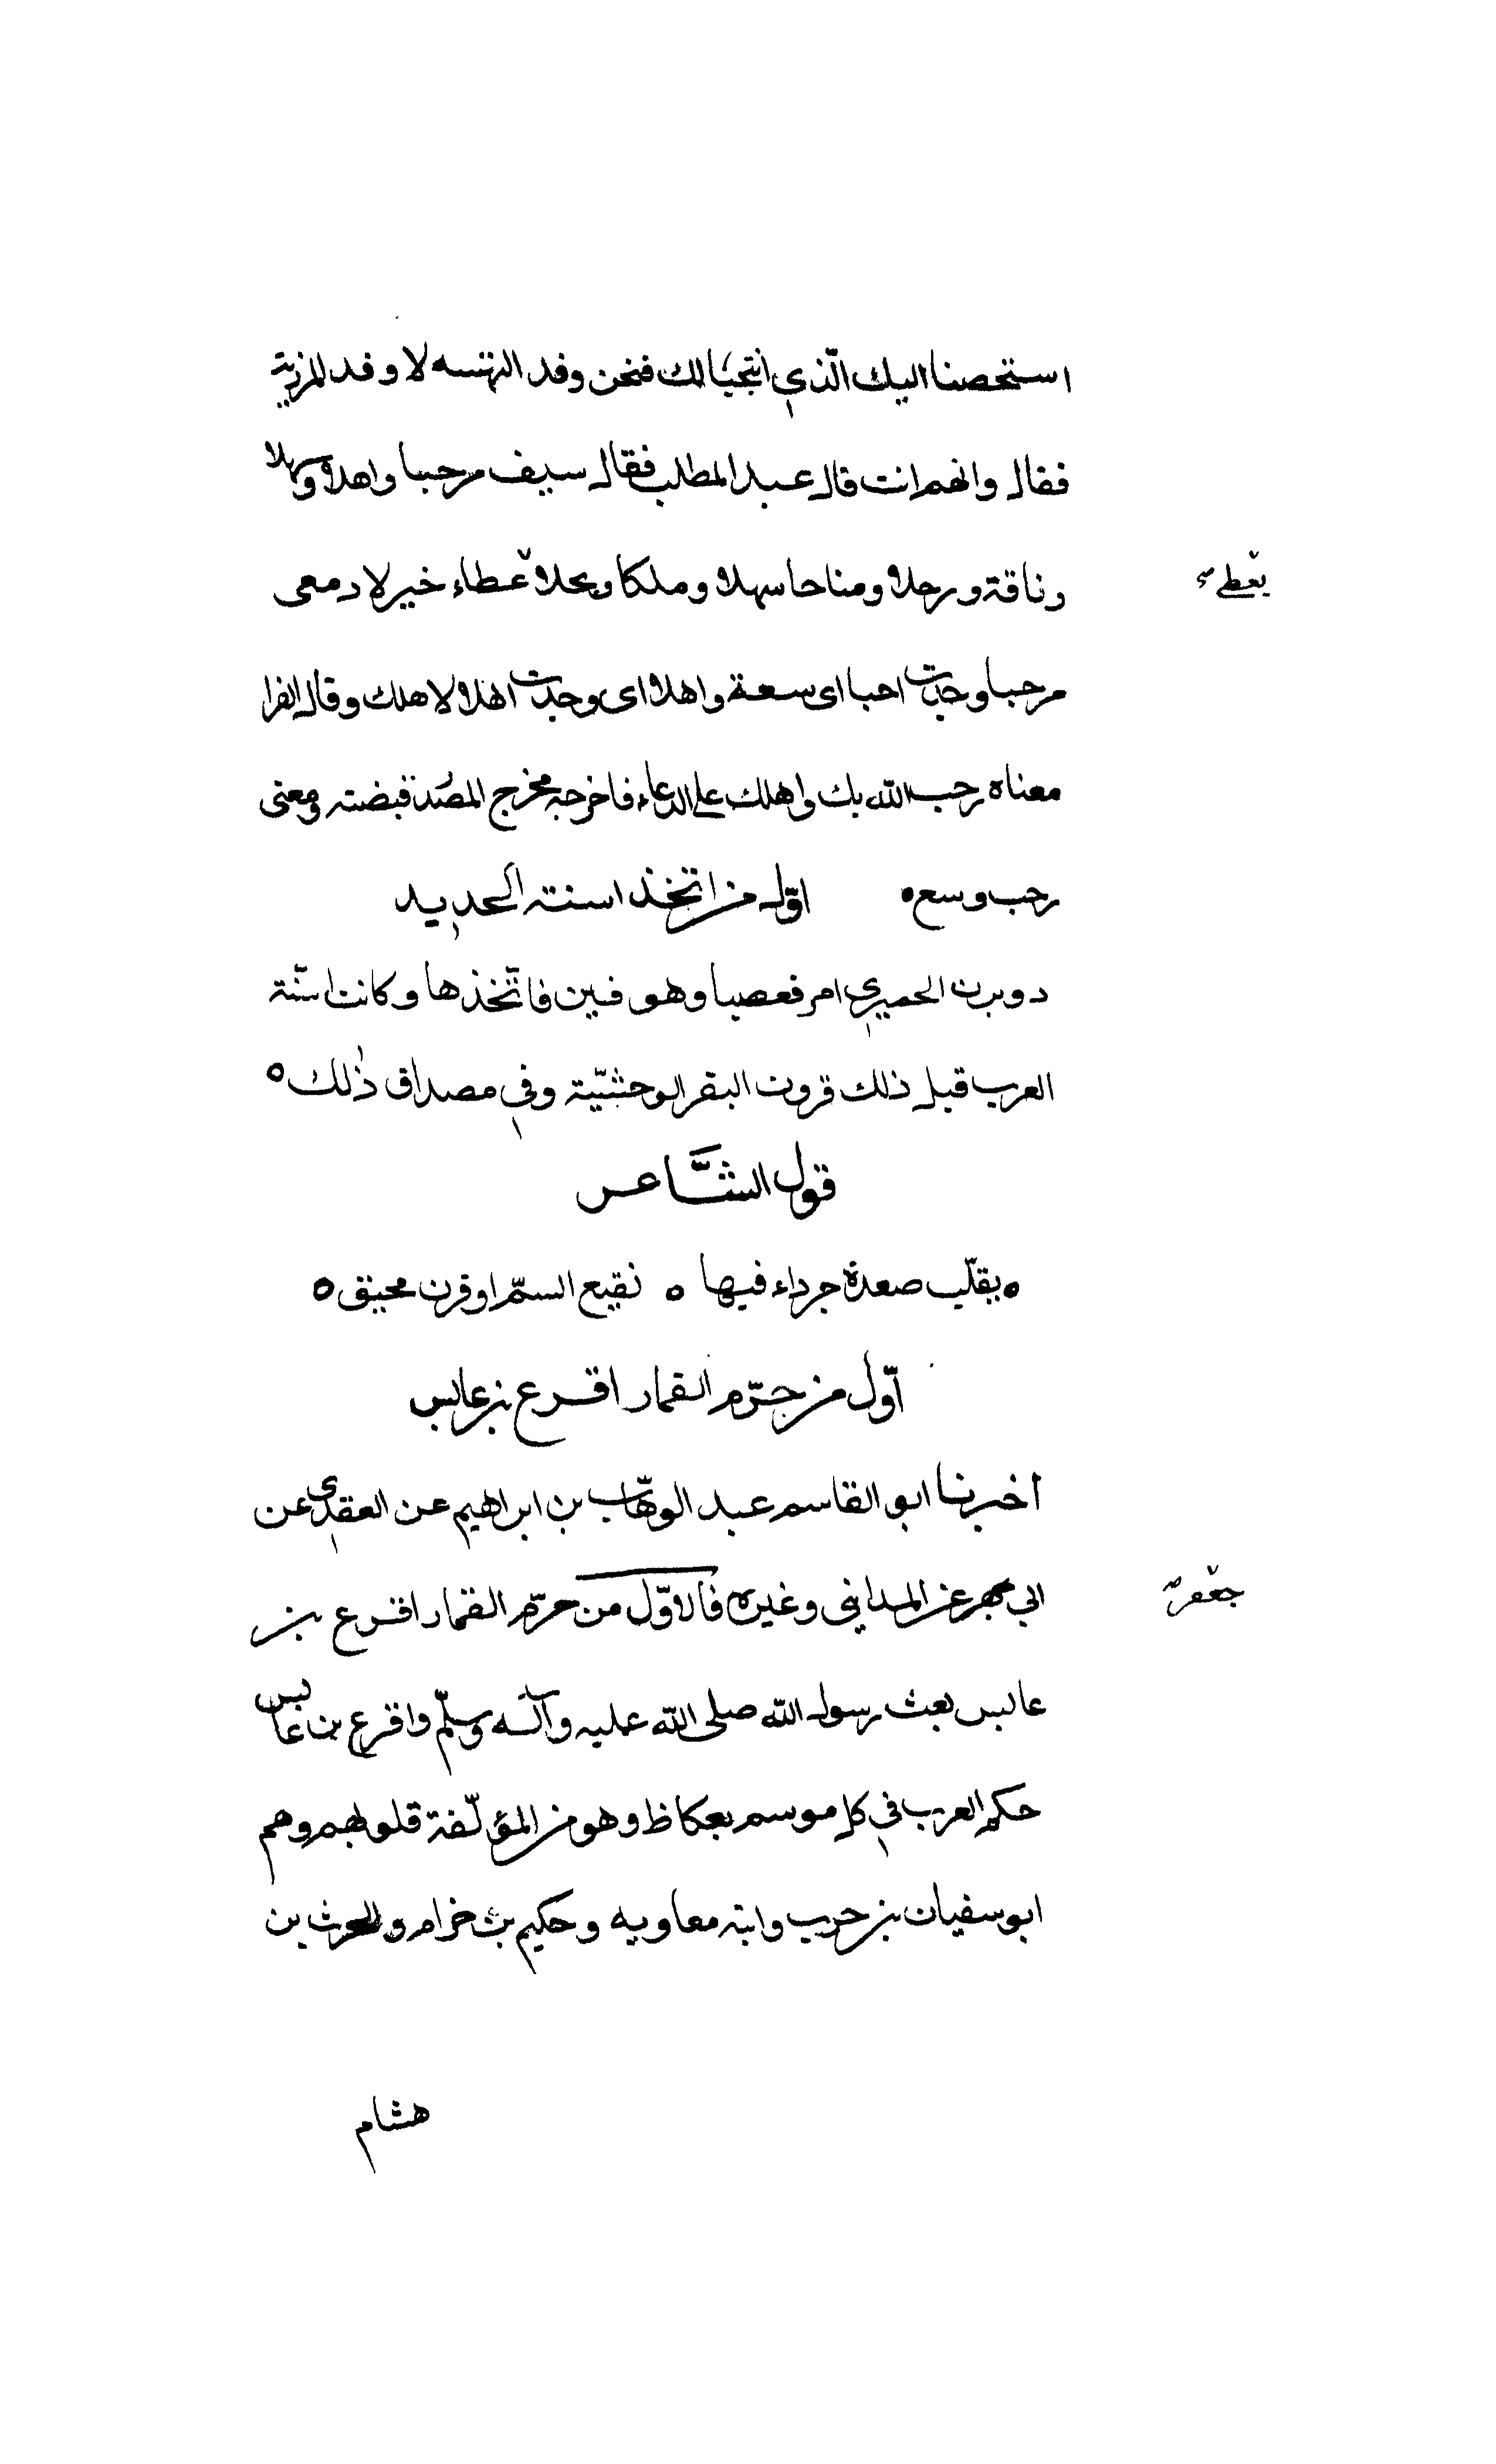 استحصنا اليك الّذي انتجيا لك فنحن وفد التهنسه لا وفد المرزية
فقال وانهم انت قال عبد المطلب فقال سيف مرحبا واهلا وسهلا
وناقة ورجلا ومناحا سهلا وملكا وبحلا عطاء خير لا دمعى
يعطى
مرحبا وجدت احبا اى سعة واهلا اى وجدت اهلا لاهلك وقال الفرا
معناه رحب الله بك واهلك على الدعاء فاخرجه مخرج المصدر قبضته ومعنى
رحب وسع ه اوّل من اتخذ اسنته الحديد
دوبرن الحميري امر فعصبا وهو فين فاتّخذها وكانت اسنّة
العرب قبل ذلك قرون البقر الوحشيّة وفي مصداق ذلك ه
قول الشَّاعر
ه يقلّب صعدة جرداء فيها ه نقيع السمّ او قرن محيق ه
اوّل من حرّم القمار اقرع بن عابس
اخبرنا ابو القاسم عبد الوهّاب بن ابراهيم عن العقدي عن
ابي عن المدايني وغيره قال اوّل من حرّم القمار اقرع بن
جعفر
عابس بعث رسول الله صلى الله عليه وآله وسلّم واقرع بن عابس
حكم العرب في كل موسم بعكاظ وهو من المؤلّفة قلوبهم وهم
ابو سفيان بن حرب وابنه معاويه وحكيم بن خرام والحرث بن
هشام